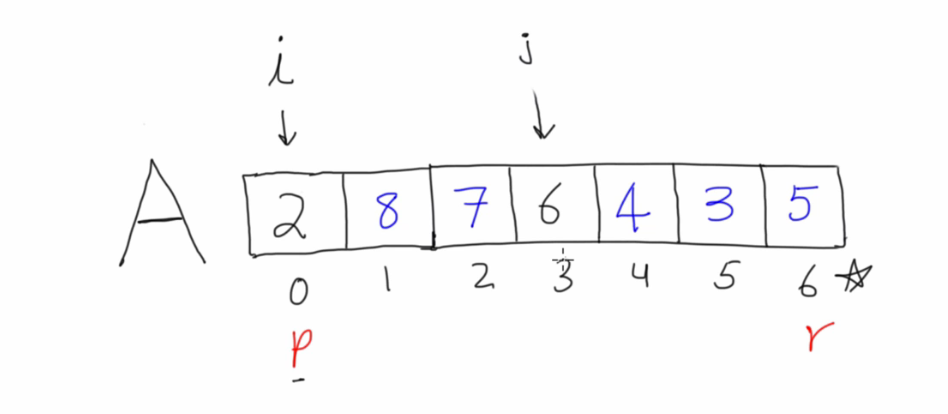 i j
A 2 8 7 6 4 3 5
0 1 2 3 4 5 6 ☆
p r